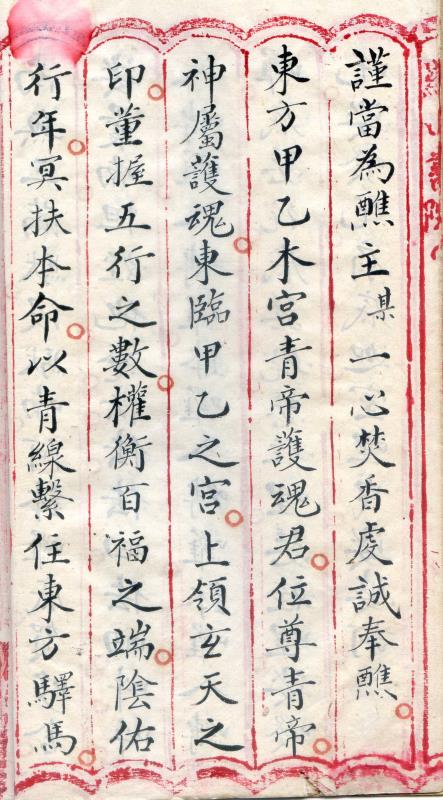 謹當為醮主某一心焚香虔誠奉醮
東方甲乙木宮青帝護魂君位尊青帝
神屬護魂東臨甲乙之宮上領玄天之
印董握五行之數權衡百福之端陰佑
行年冥扶本命以青線繫住東方驛馬